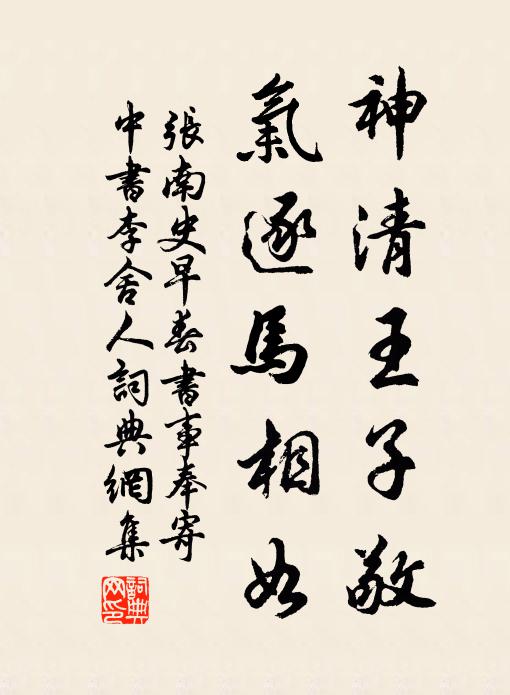 神清王子敬
氣逐馬相如
張南史早春書事奉寄
中書李舍人詞典網集
詞典网印